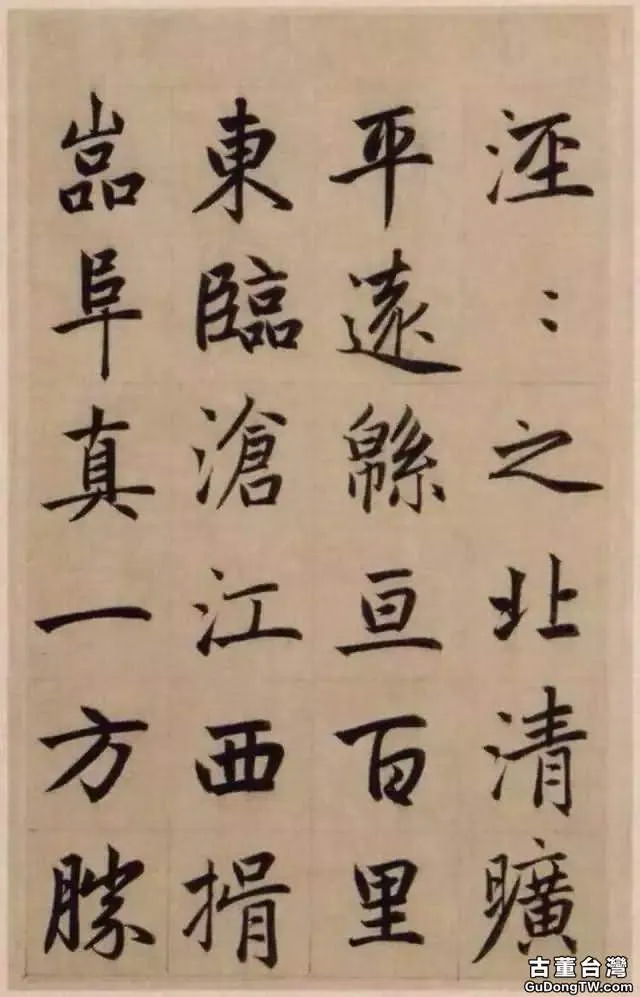 涇〻之北清曠
平遠緜亘百里
東臨滄江西揖
嵒阜真一方勝
古董台灣
GuDongTW.com